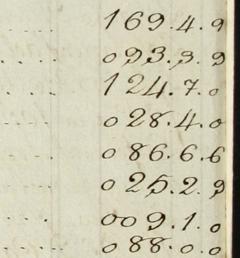 169.4.9
093.3.9
124.7.0
028.4.0
086.6.6
025.2.9
009.1.0
088.0.0